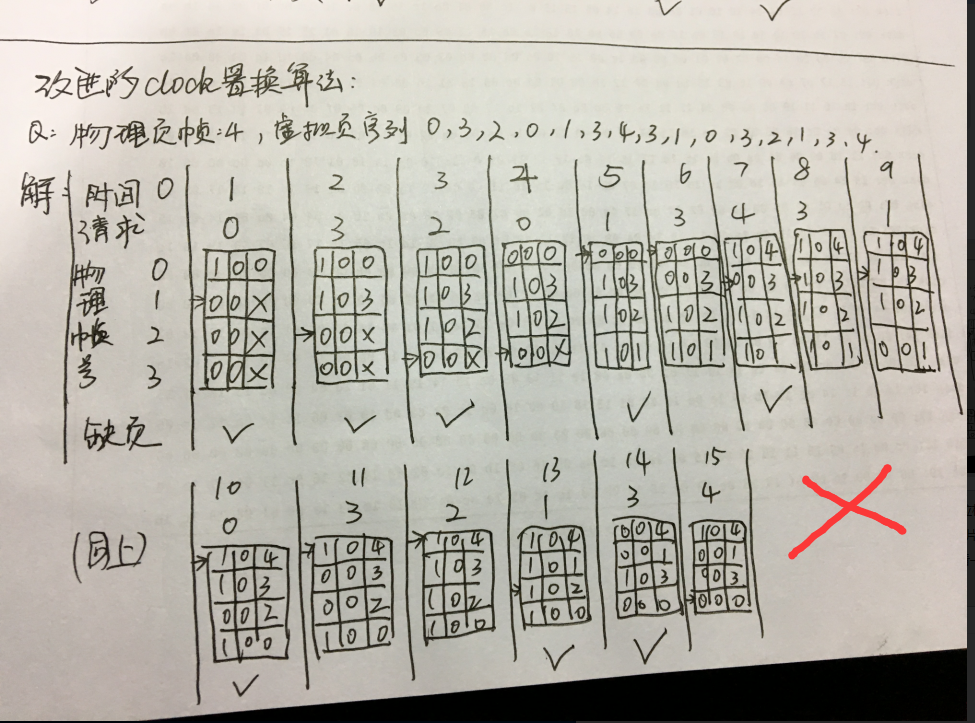 改进的clock置换算法:
Q: 物理页帧:4, 虚拟页序列 0,3,2,0,1,3,4,3,1,0,3,2,1,3,4.
解: 时间 0 1 2 3 4 5 6 7 8 9
请求 0 3 2 0 1 3 4 3 1
物 0 100 100 100 000 000 000 104 104 104
理 1 00X 103 103 103 103 003 003 103 103
帧 2 00X 00X 102 102 102 102 102 102 102
号 3 00X 00X 00X 00X 101 101 101 101 001
缺页 ✓ ✓ ✓ ✓ ✓
10 11 12 13 14 15
(同上) 0 3 2 1 3 4
104 104 104 104 004 104
103 003 103 101 001 001
002 002 102 102 103 003
100 100 100 100 000 000
✓ ✓ ✓